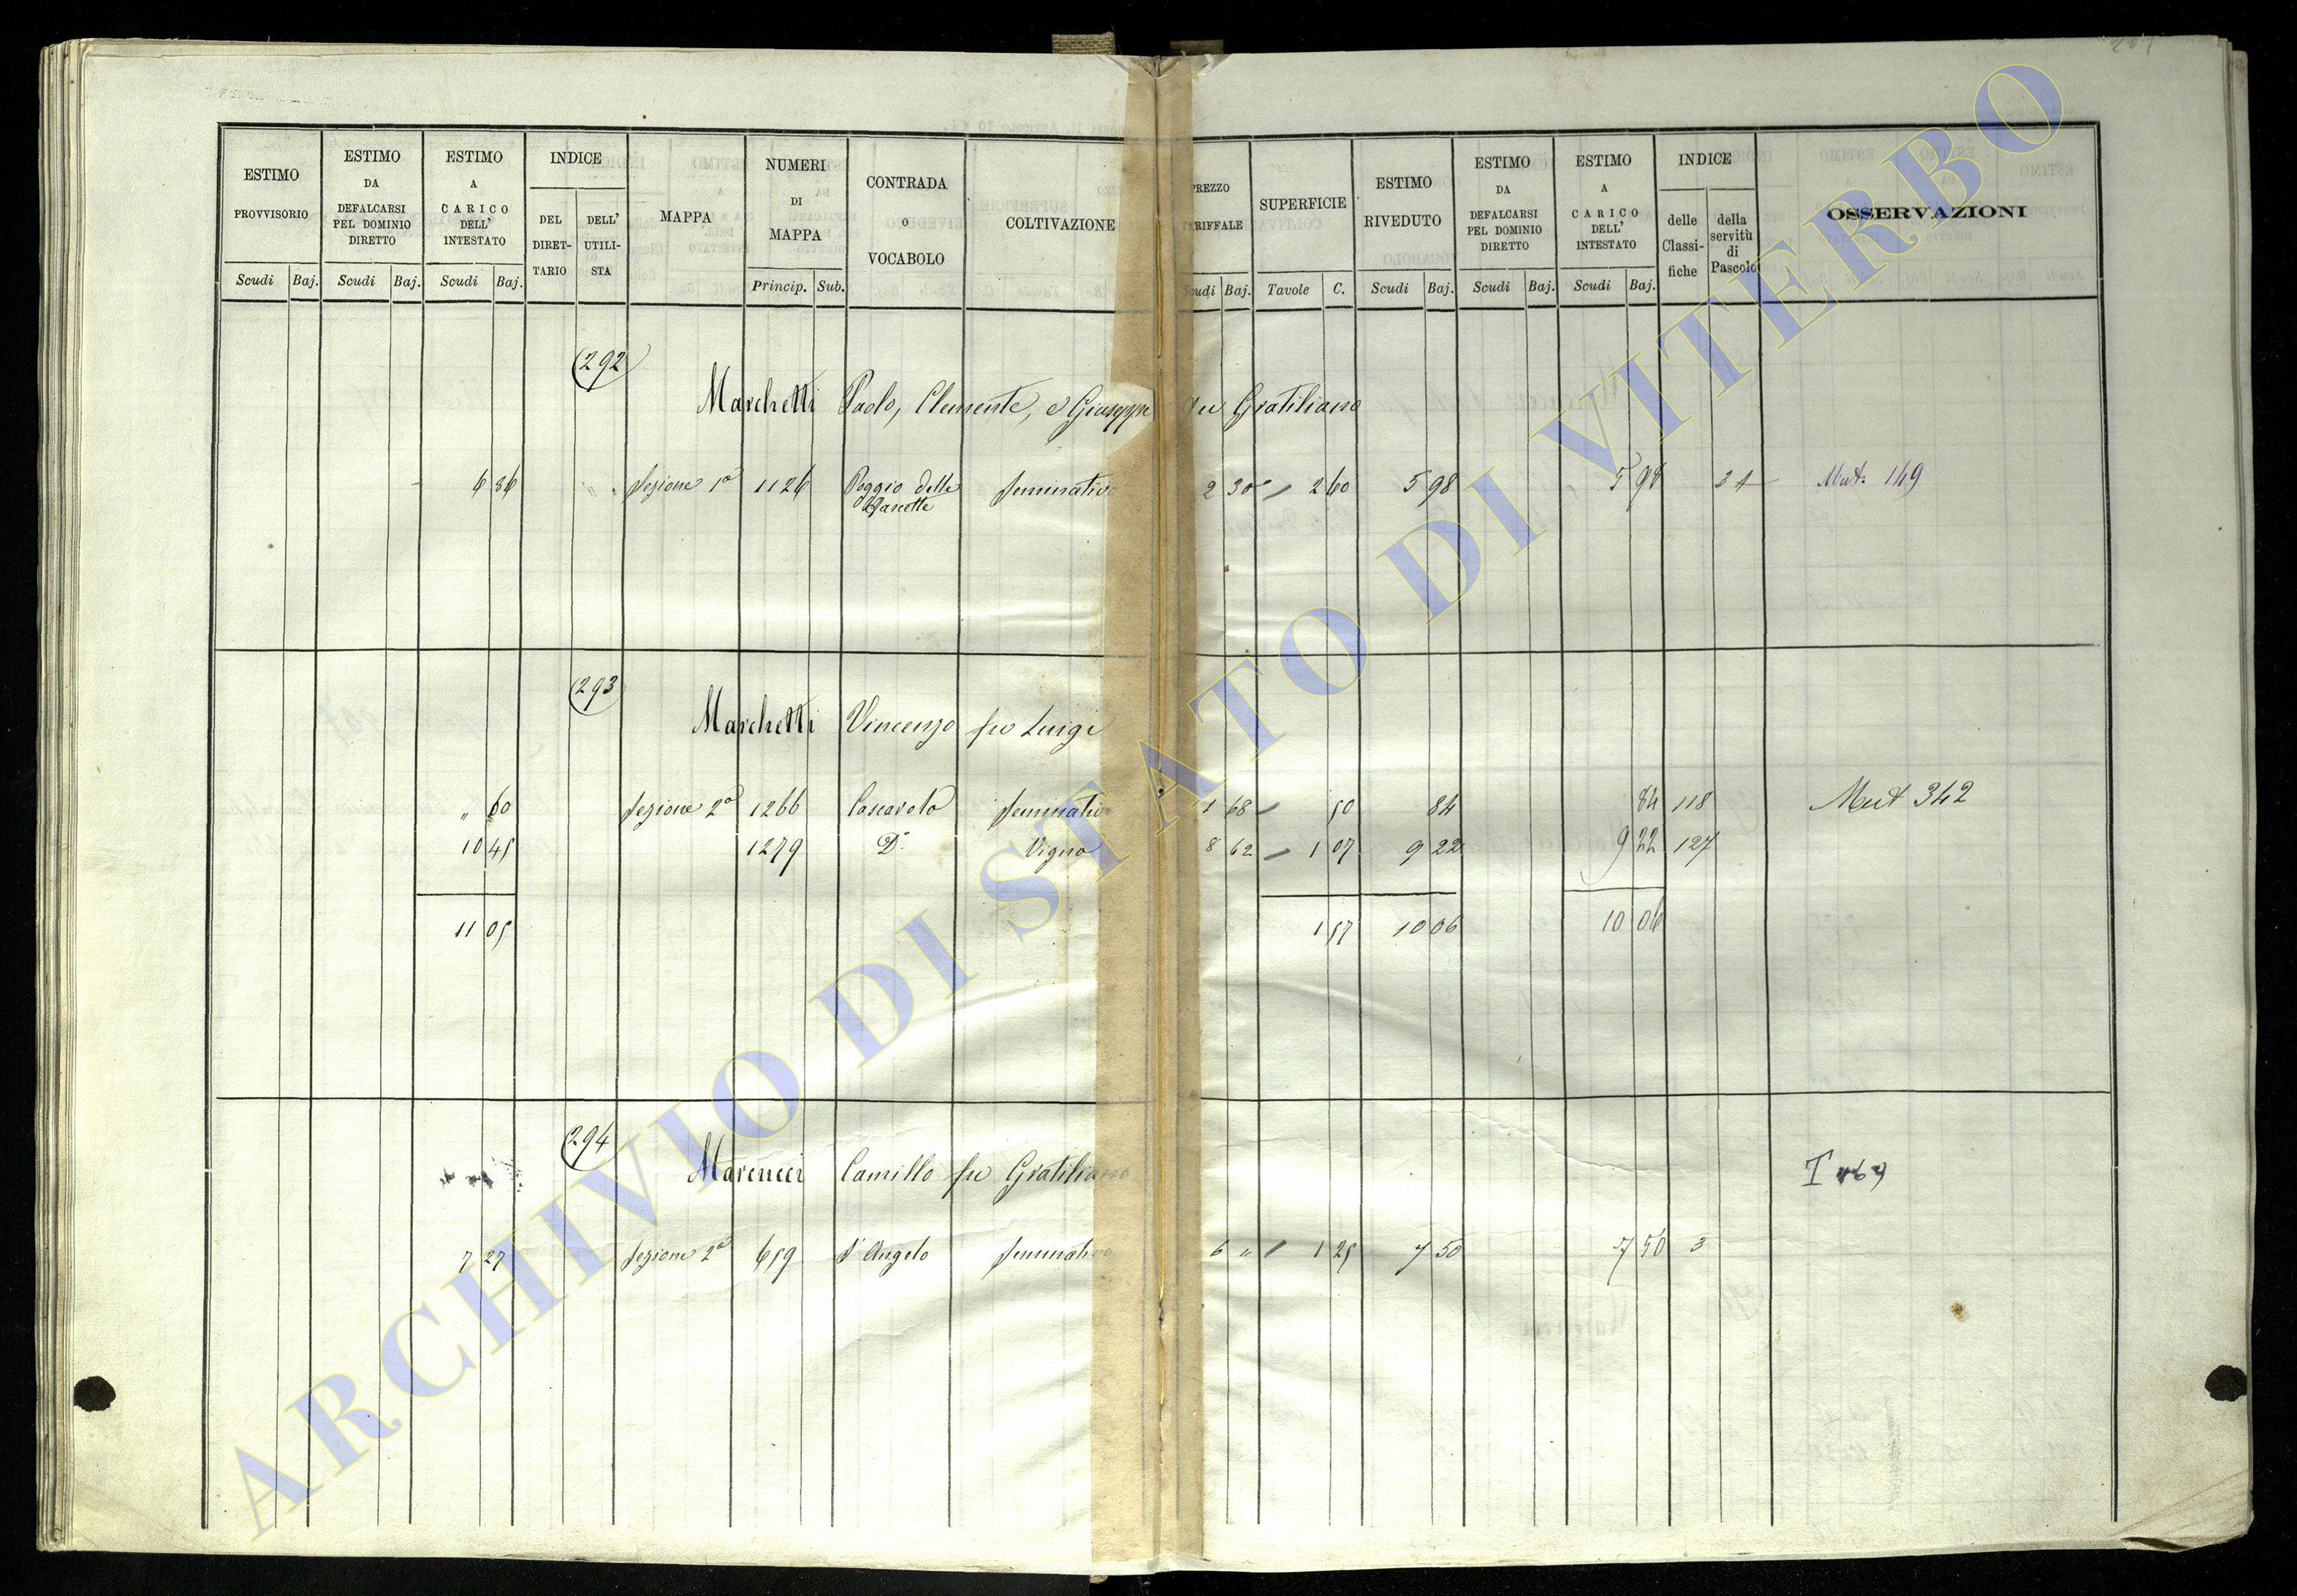 ESTIMO PROVVISORIO
ESTIMO DA DEFALCARSI PEL DOMINIO DIRETTO
ESTIMO A CARICO DELL' INTESTATO
INDICE
DEL DIRET- TARIO
DELL' UTILI- STA
MAPPA
NUMERI DI MAPPA
CONTRADA O VOCABOLO
COLTIVAZIONE
PREZZO TARIFFALE
SUPERFICIE
ESTIMO RIVEDUTO
ESTIMO DA DEFALCARSI PEL DOMINIO DIRETTO
ESTIMO A CARICO DELL' INTESTATO
INDICE
delle Classi- fiche
della servitù di Pascolo
OSSERVAZIONI
Scudi Baj. Scudi Baj. Scudi Baj. Princip. Sub. Scudi Baj. Tavole C. Scudi Baj. Scudi Baj. Scudi Baj.
292
Marchetti Paolo, Clemente, e Giuseppe fu Gratiliano
6 86 Sezione 1a 1126 Poggio delle seminativo 2 30 2 60 5 98 5 98 Mut. 149
293
Marchetti Vincenzo fu Luigi
" 60 Sezione 2a 1266 seminativo 1 68 50 84 84 118 Mut 342
10 45 1279 Do. Vigna 8 62 1 07 9 22 9 22 127
11 05 1 57 10 06 10 06
294
Marcucci Camillo fu Gratiliano
7 27 Sezione 2a 659 S. Angelo seminativo 6 " 1 25 7 50 7 50 3
ARCHIVIO DI STATO DI VITERBO